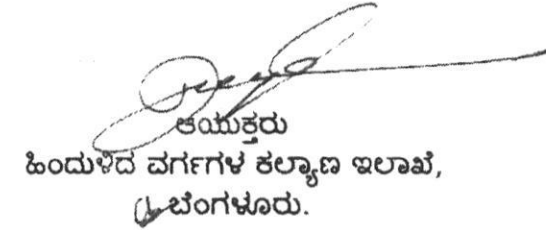 ಆಯುಕ್ತರು
ಹಿಂದುಳಿದ ವರ್ಗಗಳ ಕಲ್ಯಾಣ ಇಲಾಖೆ,
ಬೆಂಗಳೂರು.